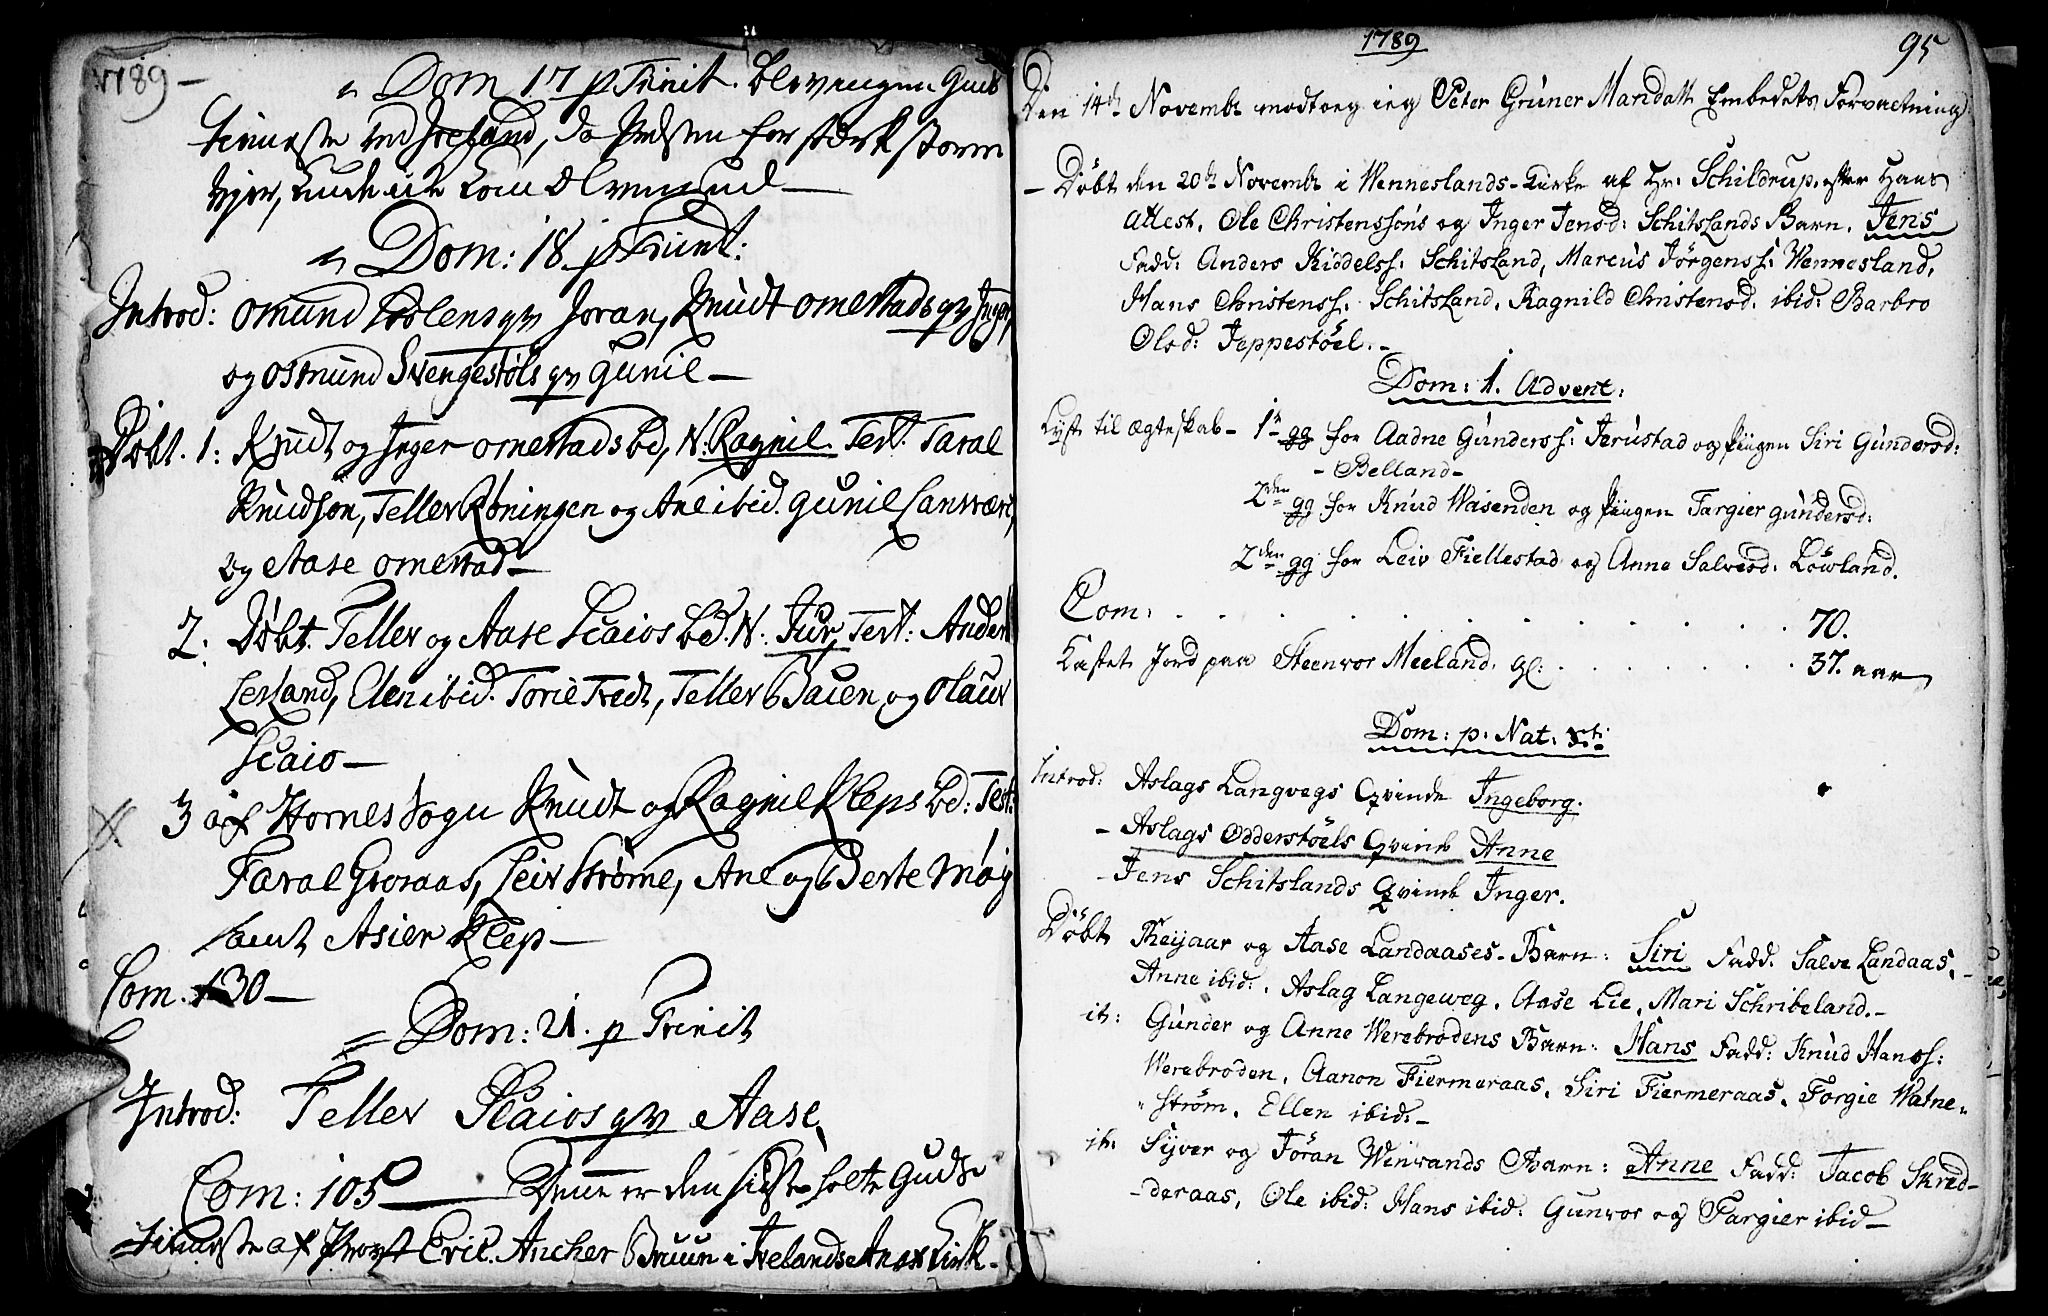 1789 -
Dom 17 p Trinit. blev ingen Guds
tienneste ved Iveland, da Præsten for stærk storm
hjem, kunde ikke komme ud -
Dom: 18. p Trinit:
Introd: Omund qv Joran, Knudt Omestads qv Inger,
og Osmund Svengestøls qv Gunil -
Døbt. 1: Knudt og Inger Omestads bd, N: Ragnil. Test. Taral
Knudson, Tellev Røningen og Ane ibid. Gunil
og Aase Omestad -
2: Døbt. Tellev og Aase Scaios bd. N: Jur, Test: Anders
Lesland, Elen ibid. Torie Tvedt, Tellev Bauen, og Olauv
Scaio -
3 af Hornes Sogn Knudt og Ragnil Kleps bd: Test:
Taral Groraas, Leiv Strøme, Ane og Berte Møy
samt Asier Klep -
Com. 130 -
Dom: 21. p Trinit
Introd: Tellev Scaios qv Aase,
Com: 105 - Denne er den sidste holte Guds-
tieneste af Provst Eric Ancher Bruun i Ivelands Anex Kirk-
1789
95
Den 14de Novembr modtog ieg Peter Grüner Mandall Embedets Forvaltning
- Døbt den 20de Novembr i Wenneslands-Kirke af Hr: Schildrup, efter Hans
Attest, Ole Christenssøns og Inger Jensd: Schitslands Barn. Jens
Fadd: Anders Kiddelss: Schitsland, Marcus Jörgenss: Wennesland,
Hans Christenss. Schitsland, Ragnild Christensd. ibid: Barbro
Olsd: Jeppestöel. -
Dom: 1. Advent:
Lyst til ægteskab - 1te gg for Aadne Gunderss: Jerustad og Piigen Siri Gundersd:
- Belland -
2den gg for Knud Wasenden og Piigen Targier Gundersd:
2den gg for Leiv Fiellestad og Anne Salvesd: Löwland.
Com: . . . . . . . . . . 70.
Kastet Jord paa Steenvor Meeland. gl: . . . . . . 37. aar
Dom: p: Nat: Xti:
Introd: Aslags Langvegs Qvinde Ingeborg.
- Aslags Odderstöels Qvinde Anne
- Jens Schitslands Qvinde Inger.
Döbt Theijaar og Aase Landaases - Barn: Siri Fadd. Salve Landaas, -
Anne ibid:, Aslag Langeweg, Aase Lie, Mari Schribeland. -
it: Gunder og Anne Werebrodens Barn: Hans Fadd: Knud Hanss:
Werebroden, Aanon Fiermeraas, Siri Fiermeraas, Torgie Watne-
ström, Ellen ibid: -
it: Syver og Jöran Winrands Barn: Anne Fadd: Jacob Skred-
deraas, Ole ibid: Hans ibid: Gunvor og Targier ibid -